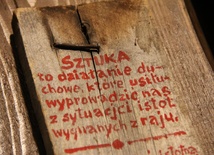 SZTUKA
to działanie du-
chowe, które usiłu-
wyprowadzić nas
z sytuacji istot
wygnanych z raju.